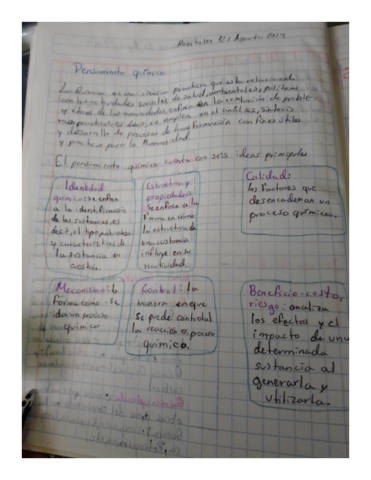 Miercoles 02 Agosto 2023
Pensamiento químico
La Química es una ciencia practica que esta relacionada
con las actividades sociales de salud, ambientales y politicas
y otras de las humanidades enfocan en la resolución de proble-
es decir, se emplea en el análisis, síntesis
y desarrollo de procesos de transformación con fines utiles
y practicos para la humanidad.
El pensamiento químico cuenta con seis ideas principales
Identidad
química: se enfoca
en la identificación
de las sustancias, es
decir, el tipo patrones
y caracteristicas de
la sustancia en
cuestión.
Estructura y
propiedades
Se enfoca a la
forma en como
la estructura de
una sustancia
influye en su
reactividad.
Calidad:
los factores que
desencadenan un
proceso químico.
Mecanismo: la
forma como se
da un proceso
químico
Control: la
manera en que
se puede controlar
la reacción o proceso
químico.
Beneficio-costo,
riesgo: analiza
los efectos y el
impacto de una
determinada
sustancia al
generarla y
utilizarla.